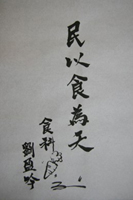 民以食為天
食科
劉盈吟